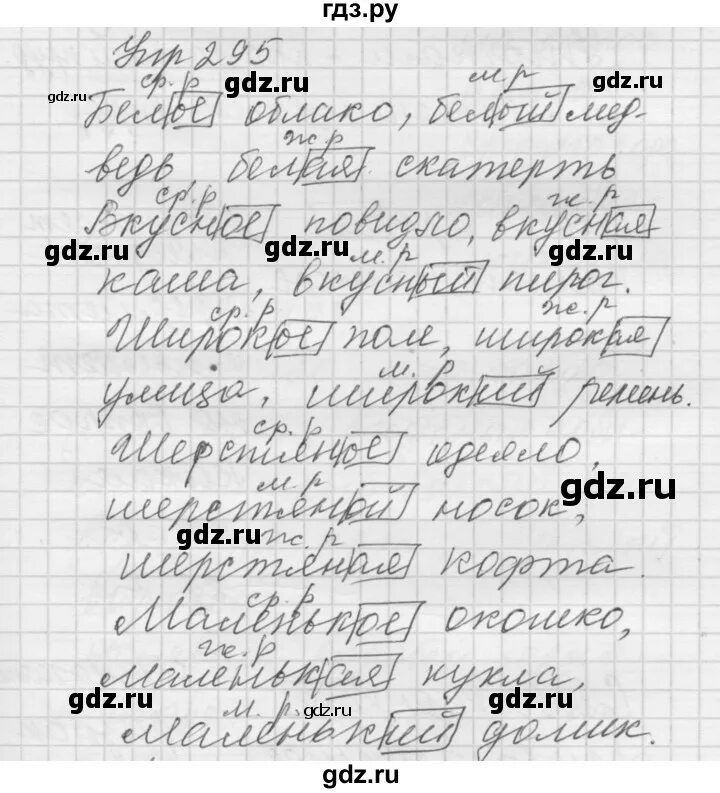 гдз.ру
Упр 295
ср. р м. р
gdz.ru gdz.ru
Белое облако, белый мед-
ж. р
ведь, белая скатерть
ср. р ж. р
Вкусное повидло, вкусная
gdz.ru м. р gdz.ru
каша, вкусный пирог.
ср. р ж. р
Широкое поле, широкая
м. р
улица, широкий ремень.
ср. р
Шерстяное одеяло,
м. р gdz.ru
шерстяной носок,
gdz.ru ж. р
шерстяная кофта.
ср. р
Маленькое окошко,
ж. р
маленькая кукла,
gdz.ru м. р. gdz.ru gdz.ru
маленький домик.
gdz.ru